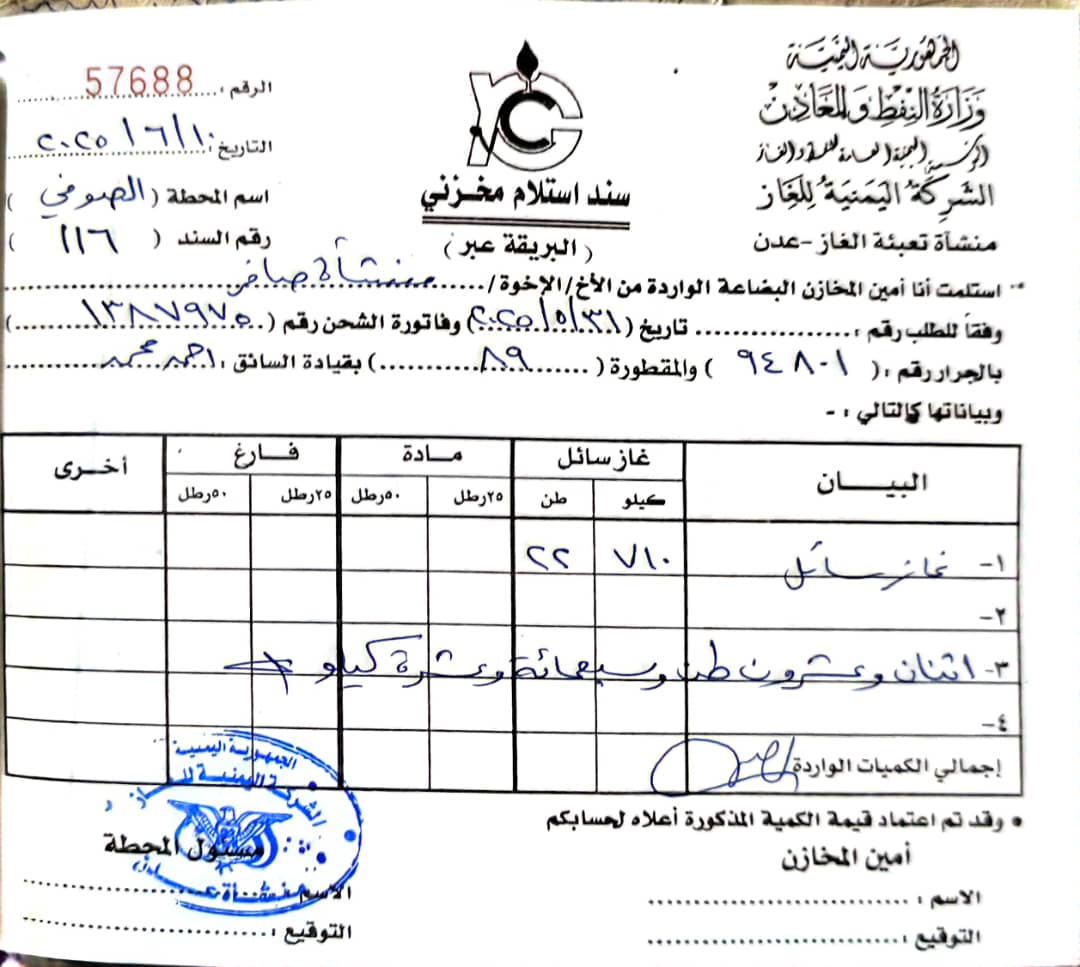 الجمهورية اليمنية
وزارة النفط والمعادن
المؤسسة اليمنية العامة للنفط والغاز
الشركة اليمنية للغاز
منشأة تعبئة الغاز - عدن
سند استلام مخزني
(البريقة عبر)
الرقم : 57688
التاريخ : ٢٠٢٥/٦/١٠
اسم المحطة ( الصوفي )
رقم السند ( ١١٦ )
استلمت أنا أمين المخازن البضاعة الواردة من الأخ/ الإخوة / منشأة صافر
وفقاً للطلب رقم : ................ تاريخ (٢٠٢٥/٥/٣١) وفاتورة الشحن رقم (١٣٨٧٩٧٥)
بالجرار رقم : ( ٩٤٨٠١ ) والمقطورة ( ٨٩ ) بقيادة السائق : احمد محمد
وبياناتها كالتالي : -
البيان غاز سائل مادة فارغ أخرى
كيلو طن ٢٥رطل ٥٠رطل ٢٥رطل ٥٠رطل
١- غاز سائل ٧١٠ ٢٢
٢-
٣- اثنان وعشرون طن وسبعمائة وعشرة كيلو
٤-
إجمالي الكميات الواردة
• وقد تم اعتماد قيمة الكمية المذكورة أعلاه لحسابكم
أمين المخازن
الاسم :
التوقيع :
مسئول المحطة
الاسم :
التوقيع :
الجمهورية اليمنية
الشركة اليمنية للغاز
منشأة عدن